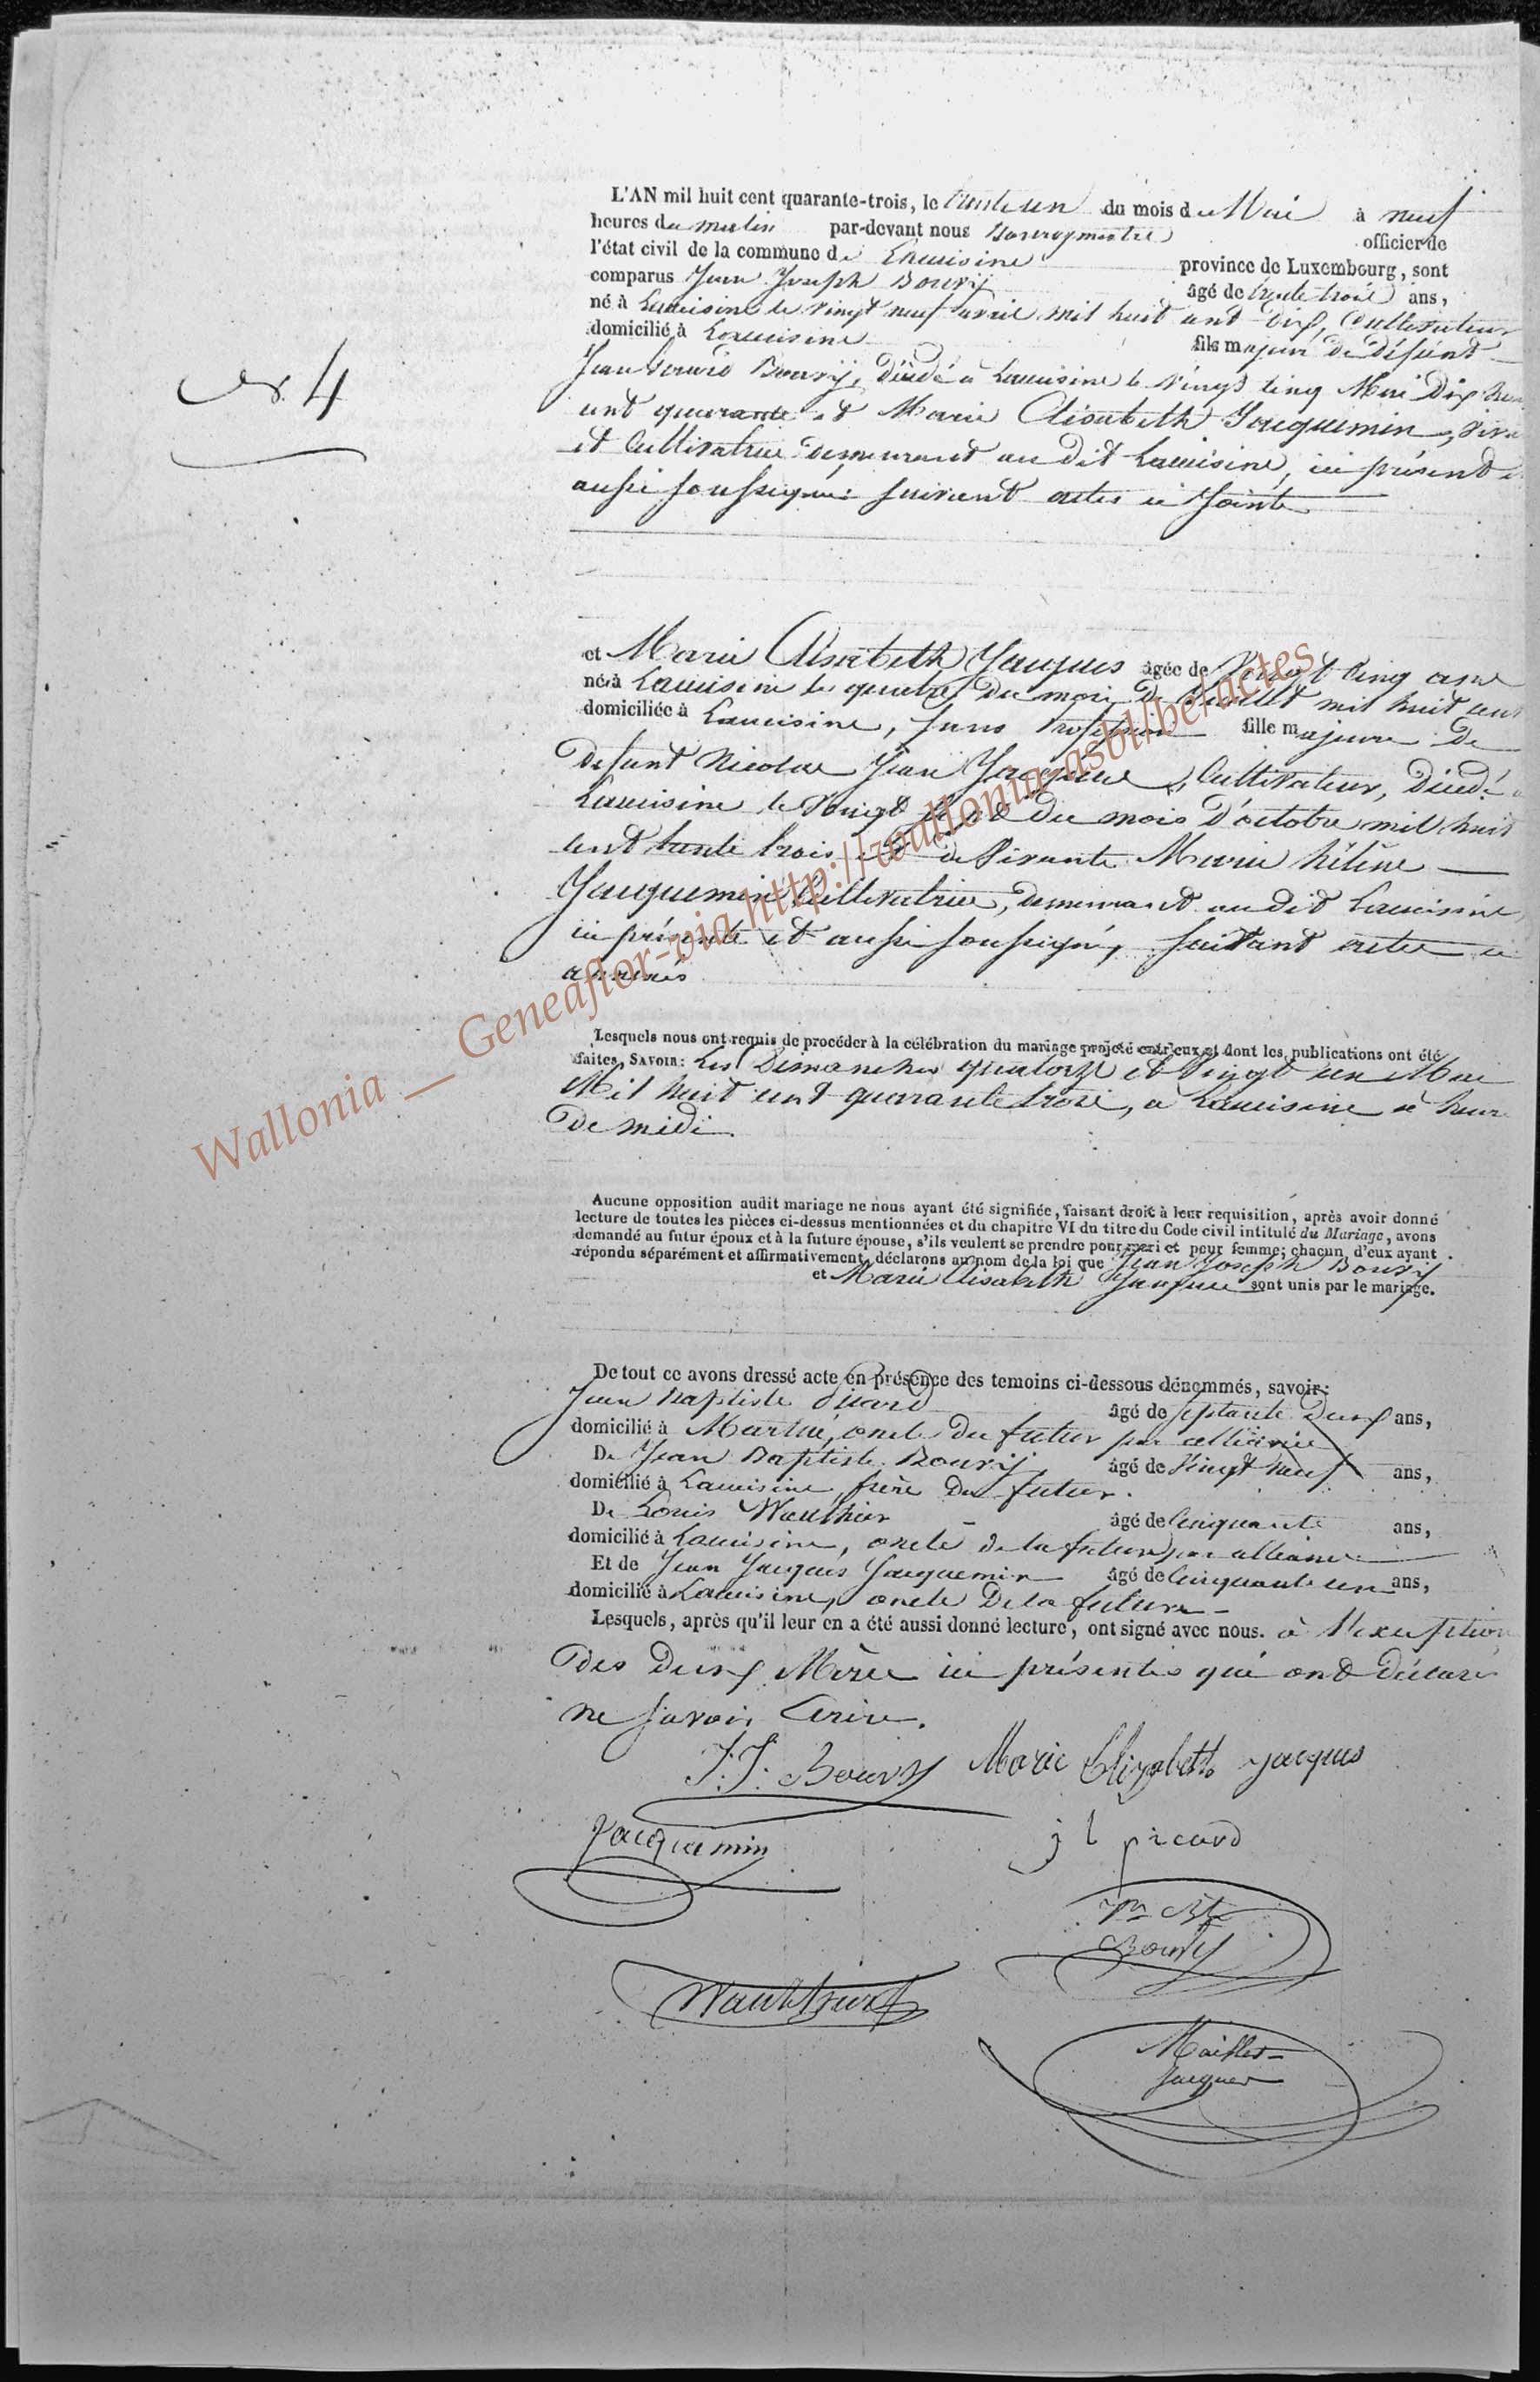 L'AN mil huit cent quarante-trois, le trente un du mois de Mai à neuf
heures du matin par-devant nous Bourgmestre officier de
l'état civil de la commune de Lacuisine province de Luxembourg, sont
comparus Jean Joseph Bouvÿ âgé de trente trois ans,
né à Lacuisine le vingt neuf avril mil huit cent dix, Cultivateur
domicilié à Lacuisine fils majeur de défunt
Jean Bouvÿ, décédé à Lacuisine le vingt cinq Mai dix huit
cent quarante et Marie Elisabeth Jacquemin,
et Cultivatrice demeurant au dit Lacuisine, ici présente
aussi soussigné: suivant actes ci joints
N° 4
et Marie Elisabeth Jacques âgée de vingt cinq ans
née à Lacuisine le quatre du mois de Juillet mil huit cent
domiciliée à Lacuisine, sans profession fille majeure de
défunt Nicolas Jean Jacques, Cultivateur, décédé à
Lacuisine le vingt sept du mois d'octobre mil huit
cent trente trois et de vivante Marie hélène
Jacquemin Cultivatrice, demeurant au dit Lacuisine
ici présente et aussi soussigné, suivant actes ci
annexés
Lesquels nous ont requis de procéder à la célébration du mariage projeté entr'eux et dont les publications ont été
faites, SAVOIR: Les Dimanches quatorze et vingt un Mai
Mil huit cent quarante trois, à Lacuisine à heure
de midi
Aucune opposition audit mariage ne nous ayant été signifiée, faisant droit à leur requisition, après avoir donné
lecture de toutes les pièces ci-dessus mentionnées et du chapitre VI du titre du Code civil intitulé du Mariage, avons
demandé au futur époux et à la future épouse, s'ils veulent se prendre pour mari et pour femme; chacun d'eux ayant
répondu séparément et affirmativement, déclarons au nom de la loi que Jean Joseph Bouvÿ
et Marie Elisabeth Jacques sont unis par le mariage.
De tout ce avons dressé acte en présence des temoins ci-dessous dénommés, savoir:
Jean Baptiste Picard âgé de septante deux ans,
domicilié à Martué, oncle du futur par alliance
De Jean Baptiste Bouvÿ âgé de vingt neuf ans,
domicilié à Lacuisine, frère du futur.
De Louis Wauthier âgé de Cinquante ans,
domicilié à Lacuisine, oncle de la future par alliance
Et de Jean Jacques Jacquemin âgé de Cinquante un ans,
domicilié à Lacuisine, oncle de la future
Lesquels, après qu'il leur en a été aussi donné lecture, ont signé avec nous. à l'exception
des deux Mères ici présentes qui ont déclaré
ne savoir Ecrire.
J. J. Bouvy Marie Elizabeth jacques
Jacquemin
j b picard
Jn Bte
Bouvy
Wauthier
Maillet-
Jacques
Wallonia _ Geneaflor-via http://wallonia-asbl/be/actes